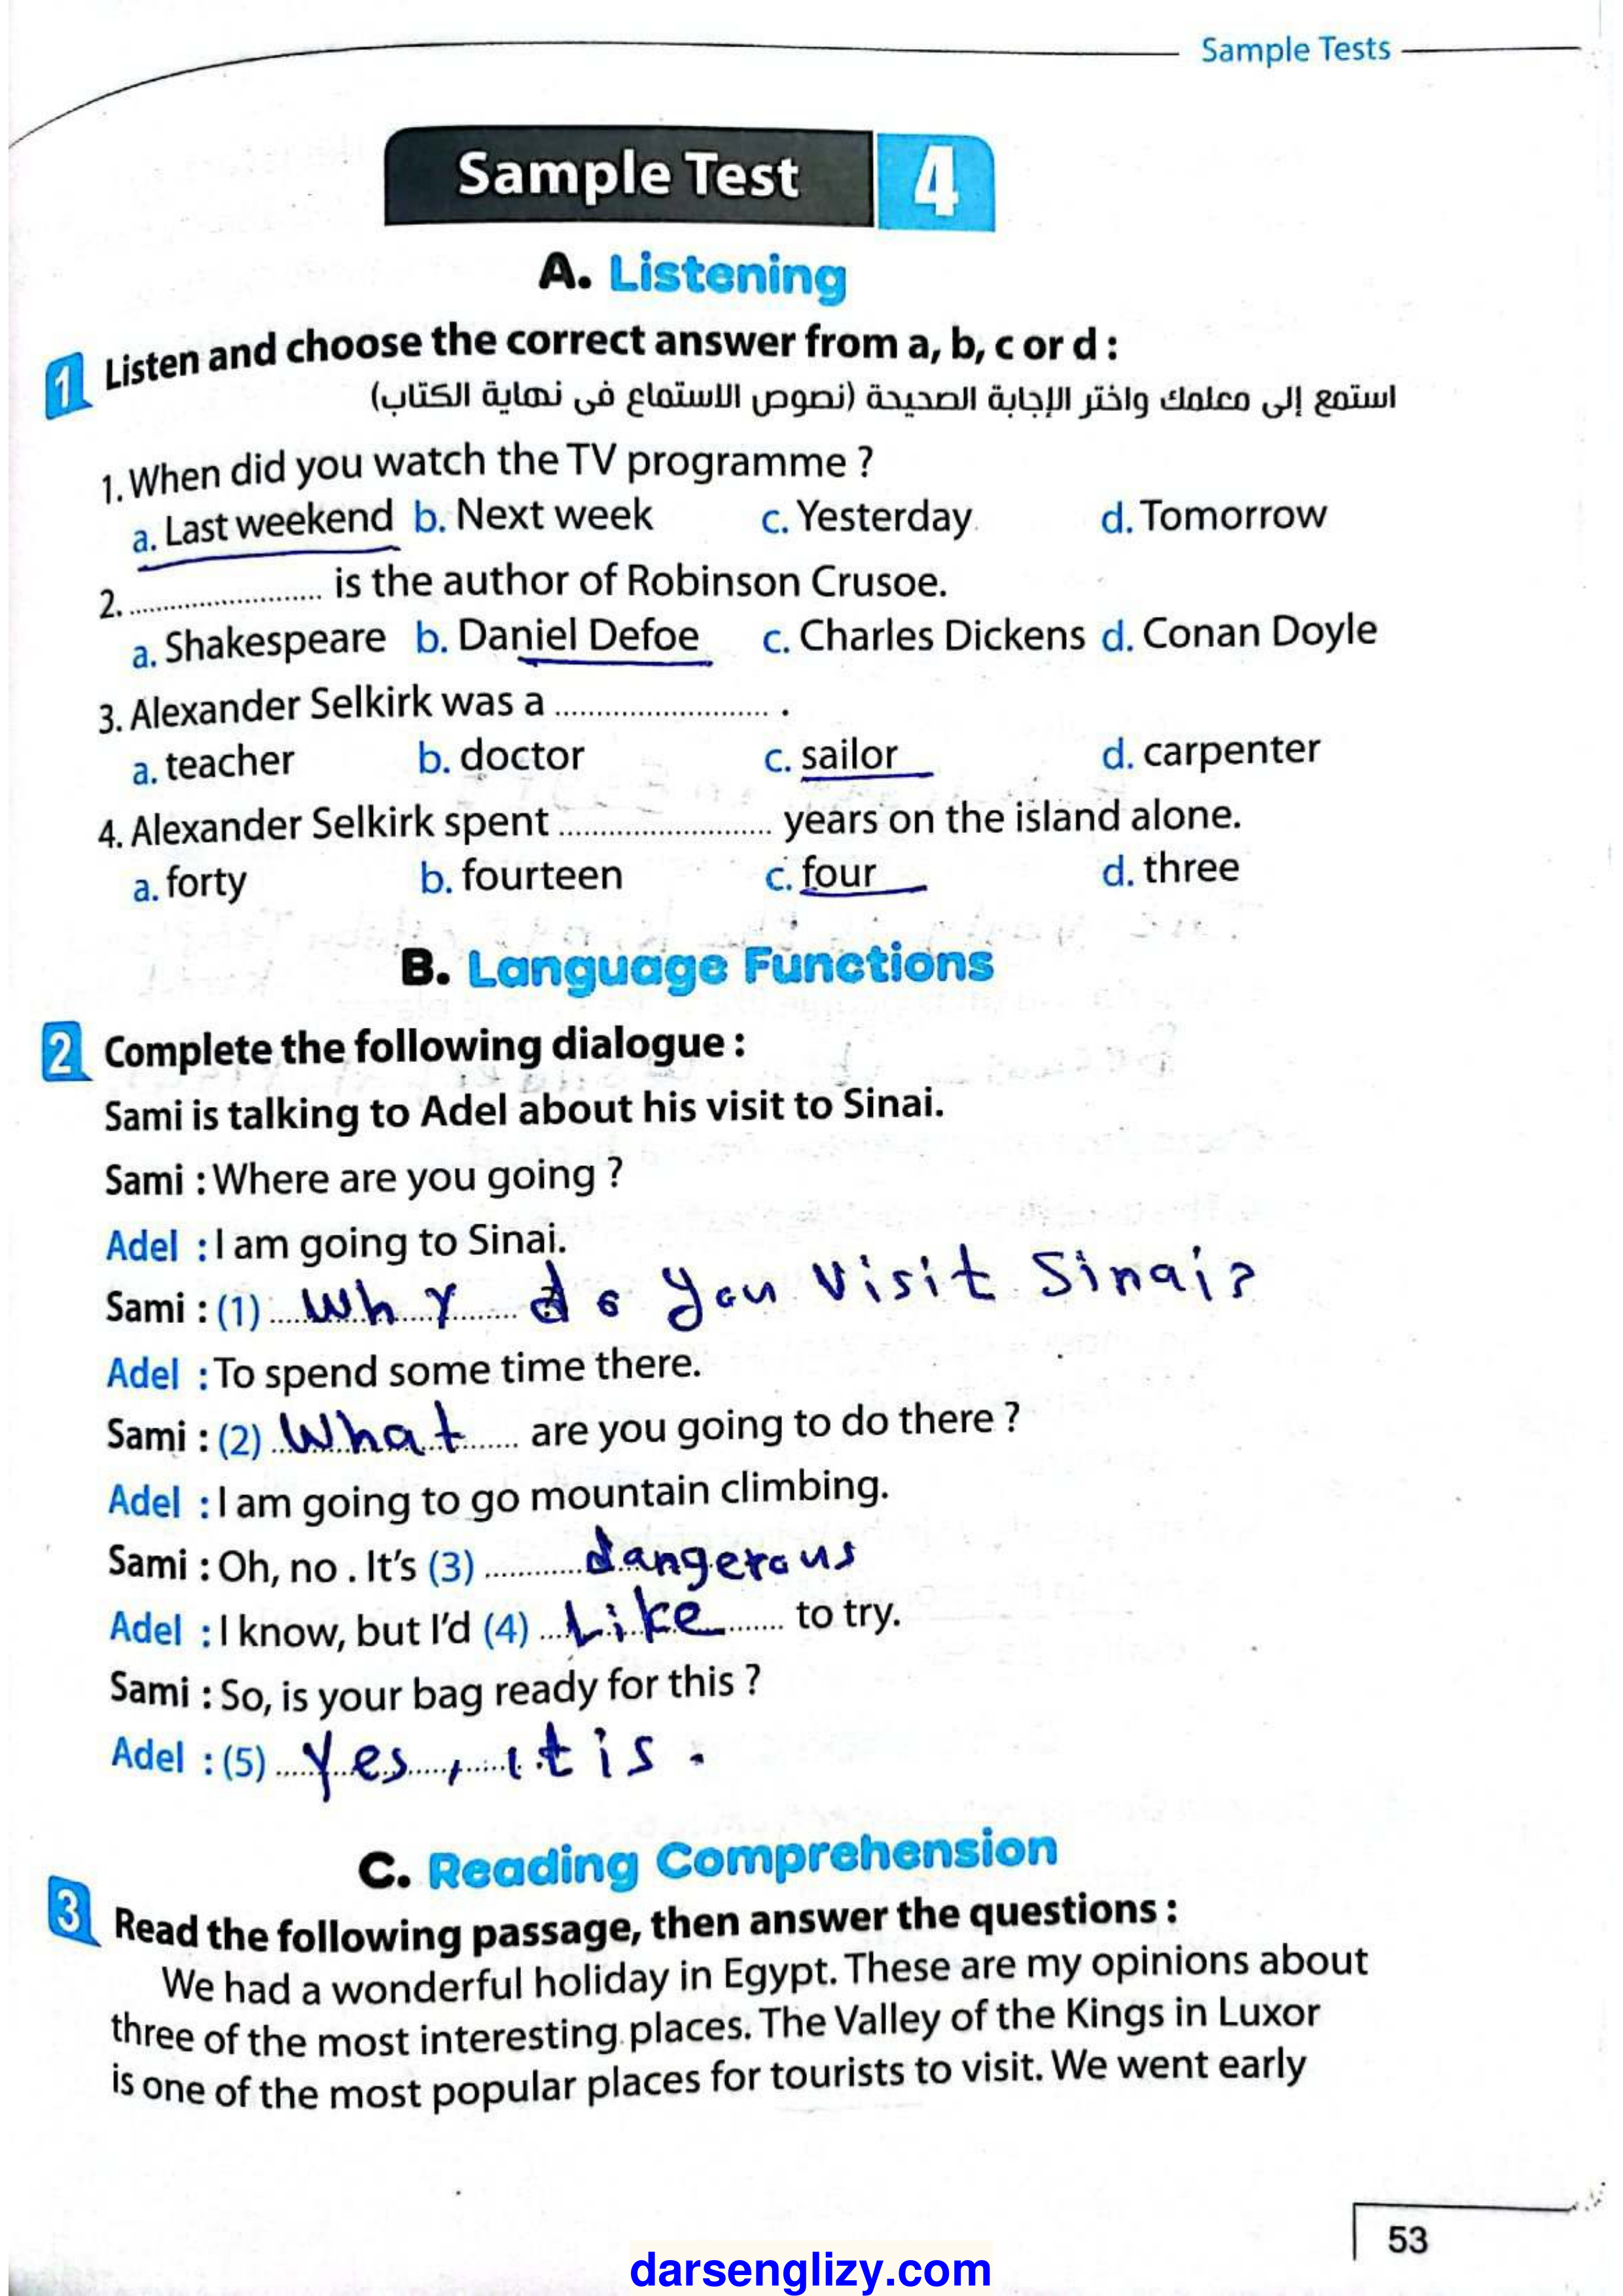 Sample Tests
Sample Test 4
A. Listening
1 Listen and choose the correct answer from a, b, c or d :
استمع إلى معلمك واختر الإجابة الصحيحة (نصوص الاستماع فى نهاية الكتاب)
1. When did you watch the TV programme ?
a. Last weekend b. Next week c. Yesterday d. Tomorrow
2. .......................... is the author of Robinson Crusoe.
a. Shakespeare b. Daniel Defoe c. Charles Dickens d. Conan Doyle
3. Alexander Selkirk was a .......................... .
a. teacher b. doctor c. sailor d. carpenter
4. Alexander Selkirk spent .......................... years on the island alone.
a. forty b. fourteen c. four d. three
B. Language Functions
2 Complete the following dialogue :
Sami is talking to Adel about his visit to Sinai.
Sami : Where are you going ?
Adel : I am going to Sinai.
Sami : (1) Why do you visit Sinai?
Adel : To spend some time there.
Sami : (2) What are you going to do there ?
Adel : I am going to go mountain climbing.
Sami : Oh, no . It's (3) dangerous
Adel : I know, but I'd (4) Like to try.
Sami : So, is your bag ready for this ?
Adel : (5) Yes, it is.
C. Reading Comprehension
3 Read the following passage, then answer the questions :
We had a wonderful holiday in Egypt. These are my opinions about
three of the most interesting places. The Valley of the Kings in Luxor
is one of the most popular places for tourists to visit. We went early
53
darsenglizy.com